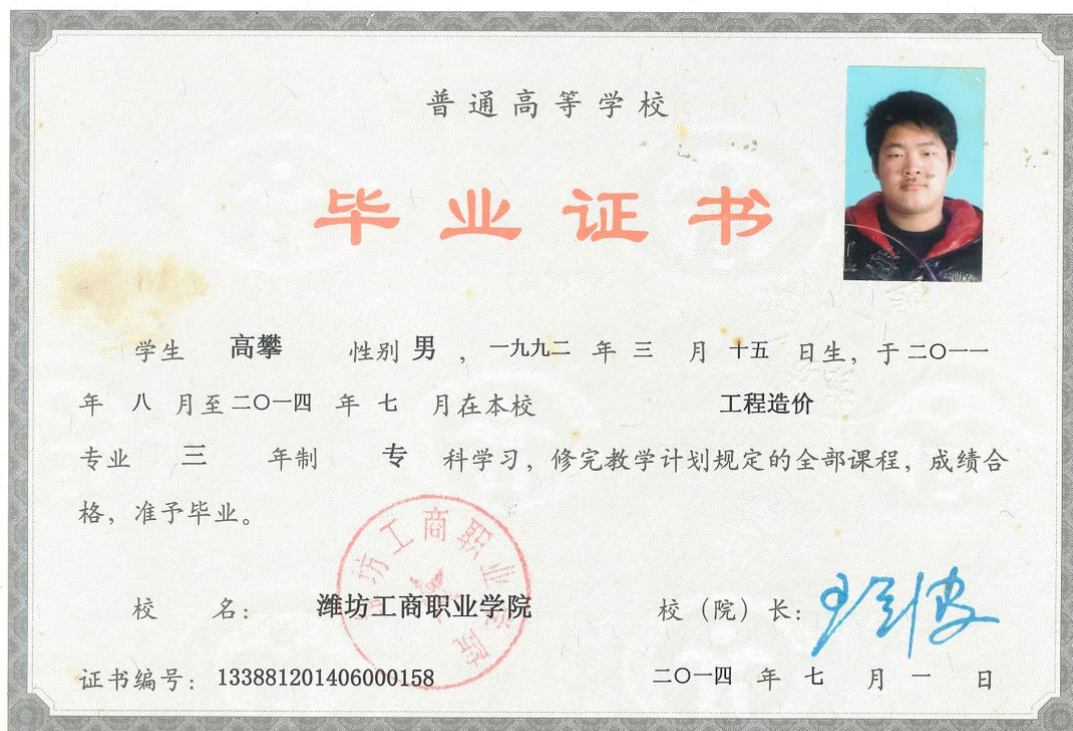 普通高等学校
毕业证书
学生 高攀 性别 男 ，一九九二 年 三 月 十五 日生，于 二〇一一
年 八 月至 二〇一四 年 七 月在本校 工程造价
专业 三 年制 专 科学习，修完教学计划规定的全部课程，成绩合
格，准予毕业。
潍坊工商职业学院
校 名： 潍坊工商职业学院 校（院）长：
证书编号：133881201406000158 二〇一四 年 七 月 一 日